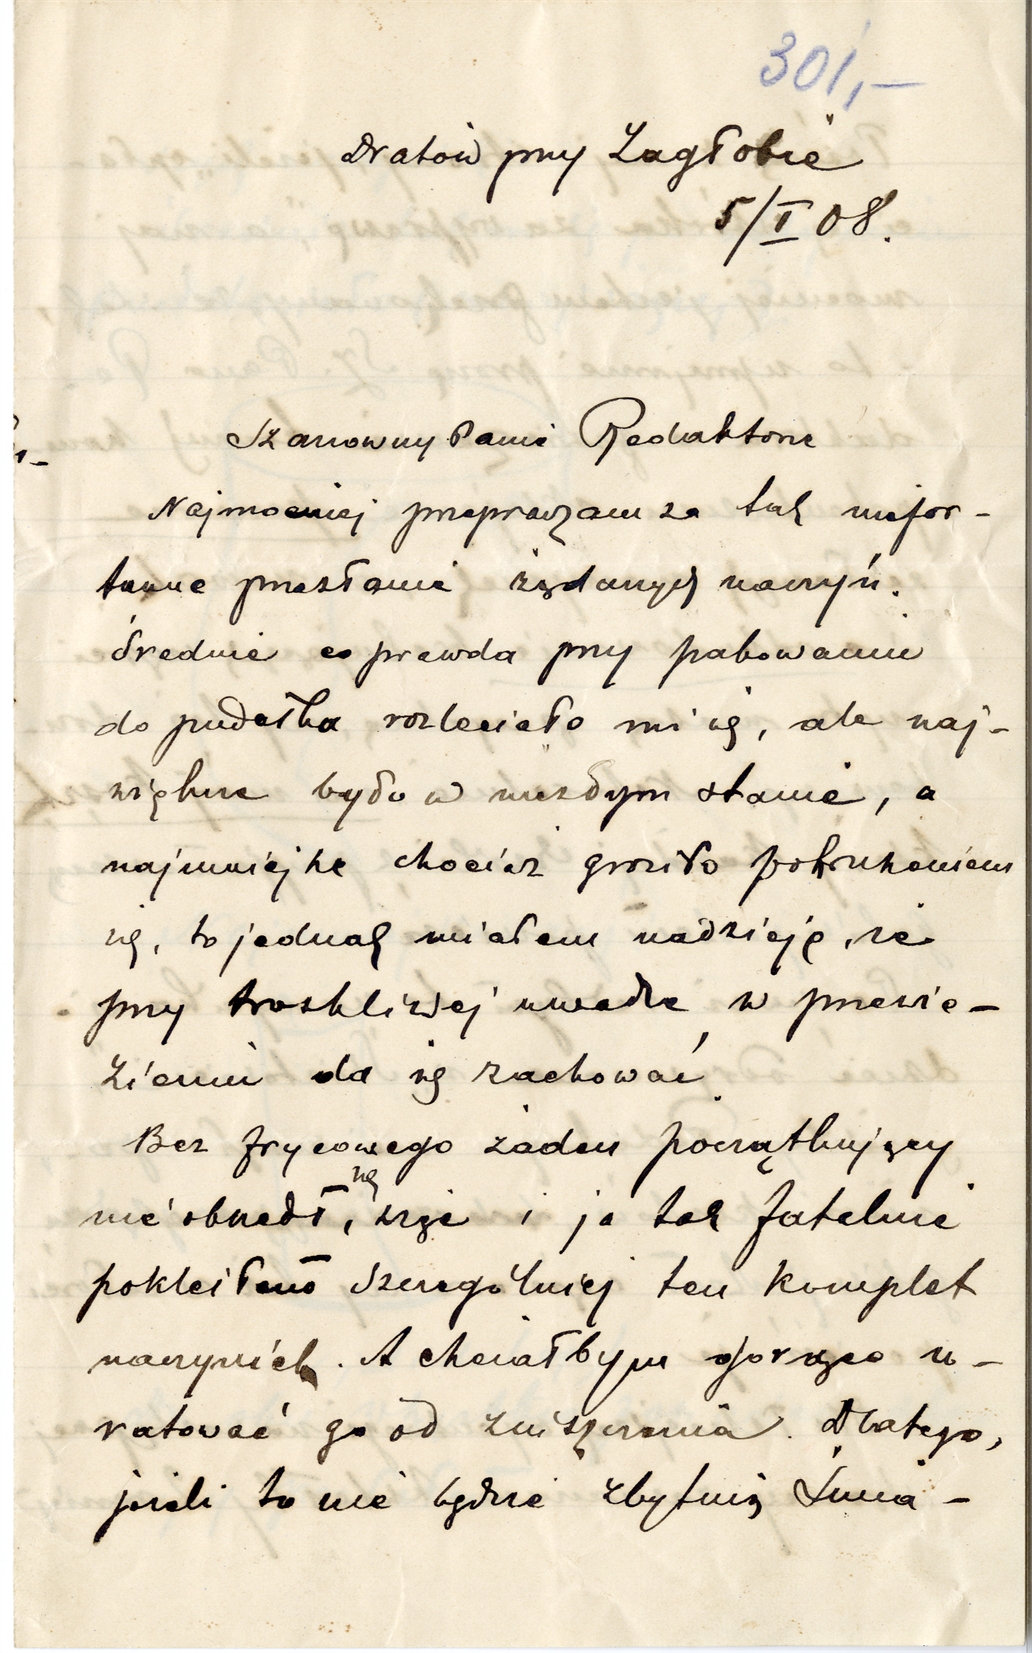 301,-
Dratów przy Zagłobie
5/I 08.
Szanowny Panie Redaktorze
Najmocniej przepraszam za tak niefor-
tunne przesłanie żądanych naczyń.
Średnie co prawda przy pakowaniu
do pudełka rozleciało mi się, ale naj-
większe było w niezłym stanie, a
najmniejsze chociaż groziło pokruszeniem
się, to jednak miałem nadzieję, że
przy troskliwej uwadze w przewie-
zieniu da się zachować
Bez frycowego żaden początkujący
nie obszedł, się więc i ja tak fatalnie
pokleiłem szczególniej ten komplet
naczyniek. A chciałbym gorąco u-
ratować go od zniszczenia. Dlatego,
jeżeli to nie będzie zbytnią śmia-